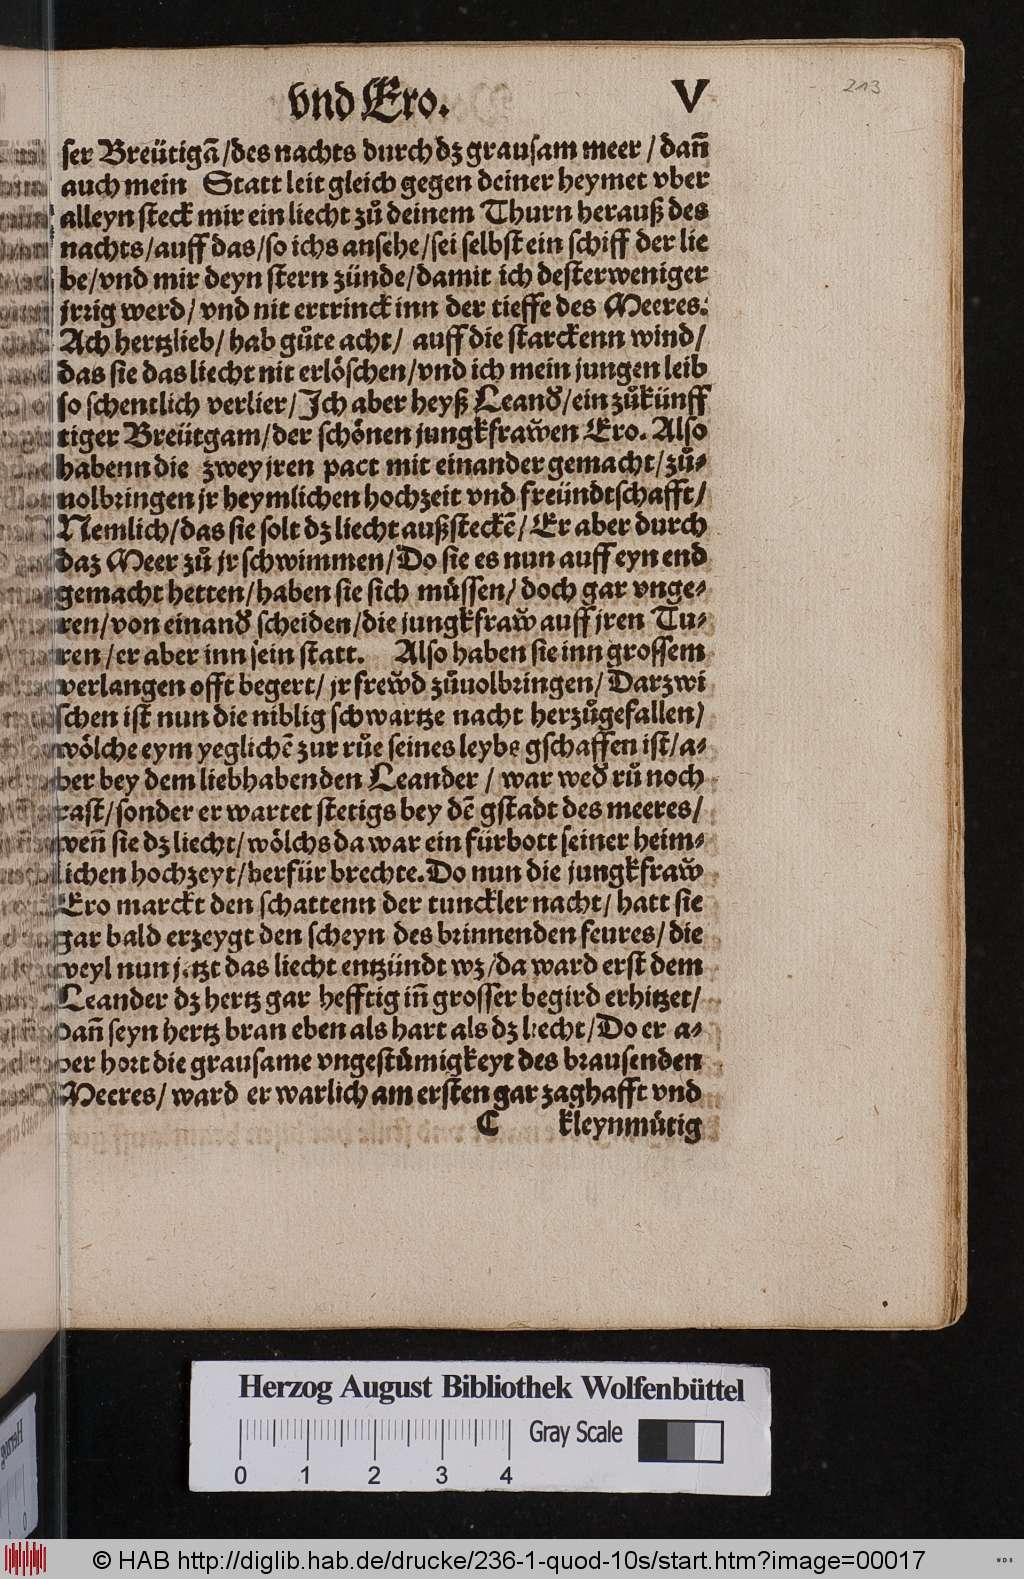 vnd Ero. V
213
ser Breütigã/des nachts durch dz grausam meer/dañ
auch mein Statt leit gleich gegen deiner heymet vber
alleyn steck mir ein liecht zů deinem Thurn herauß des
nachts/auff das/so ichs ansehe/sei selbst ein schiff der lie
be/vnd mir deyn stern zünde/damit ich dester weniger
jrrig werd/vnd nit ertrinck inn der tieffe des Meeres:
Ach hertzlieb/hab gůte acht/ auff die starckenn wind/
das sie das liecht nit erlöschen/vnd ich mein jungen leib
so schentlich verlier/Ich aber heyß Leand̃/ein zůkünff
tiger Breütgam/der schönen jungkfraw̃en Ero. Also
habenn die zwey jren pact mit einander gemacht/zů-
uolbringen jr heymlichen hochzeit vnd freündtschafft/
Nemlich/das sie solt dz liecht außsteckẽ/Er aber durch
daz Meer zů jr schwimmen/Do sie es nun auff eyn end
gemacht hetten/haben sie sich müssen/doch gar vnge-
ren/von einand̃ scheiden/die jungkfraw̃ auff jren Tu-
ren/er aber inn sein statt. Also haben sie inn grossem
verlangen offt begert/jr frew̃d zůuolbringen/Darzwi
schen ist nun die niblig schwartze nacht herzůgefallen/
wölche eym yeglichẽ zur růe seines leybs gschaffen ist/a-
ber bey dem liebhabenden Leander/war wed̃ rů noch
rast/sonder er wartet stetigs bey dẽ gstadt des meeres/
weñ sie dz liecht/wölchs da war ein fürbott seiner heim-
lichen hochzeyt/herfür brechte. Do nun die jungkfraw̃
Ero marckt den schattenn der tunckler nacht/hatt sie
gar bald erzeygt den scheyn des brinnenden feures/die
weyl nun jetzt das liecht entzündt wz/da ward erst dem
Leander dz hertz gar hefftig iñ grosser begird erhitzet/
dañ seyn hertz bran eben als hart als dz liecht/Do er a-
ber hort die grausame vngestümigkeyt des brausenden
Meeres/ward er warlich am ersten gar zaghafft vnd
C kleynmütig
Herzog August Bibliothek Wolfenbüttel
Gray Scale
0 1 2 3 4
© HAB http://diglib.hab.de/drucke/236-1-quod-10s/start.htm?image=00017